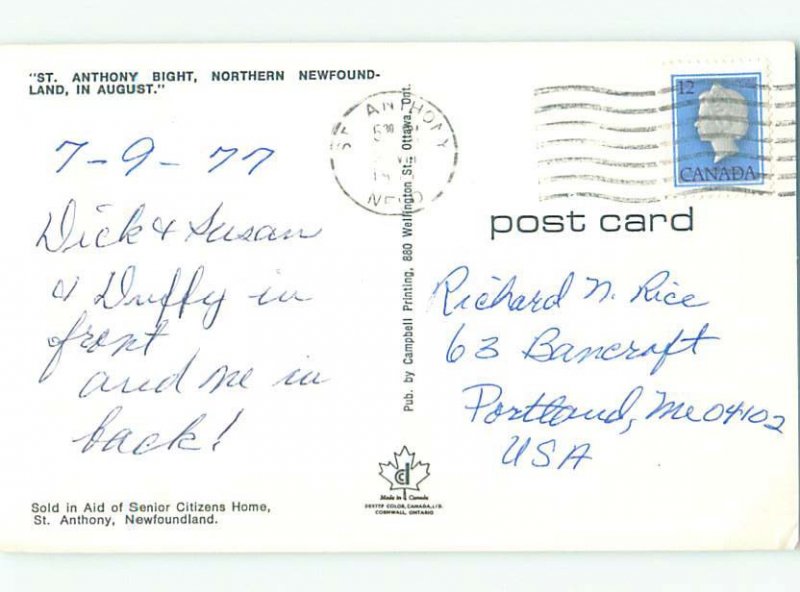 "ST. ANTHONY BIGHT, NORTHERN NEWFOUND-
LAND, IN AUGUST."
7-9-77
Dick & Susan
& Duffy in
front
and me in
back!
Sold in Aid of Senior Citizens Home,
St. Anthony, Newfoundland.
Pub. by Campbell Printing, 880 Wellington St., Ottawa, Ont.
ST. ANTHONY
NFLD
12
CANADA
post card
Richard N. Rice
63 Bancroft
Portland, Me 04102
USA
Made in Canada
DEXTER COLOR, CANADA, LTD.
CORNWALL, ONTARIO